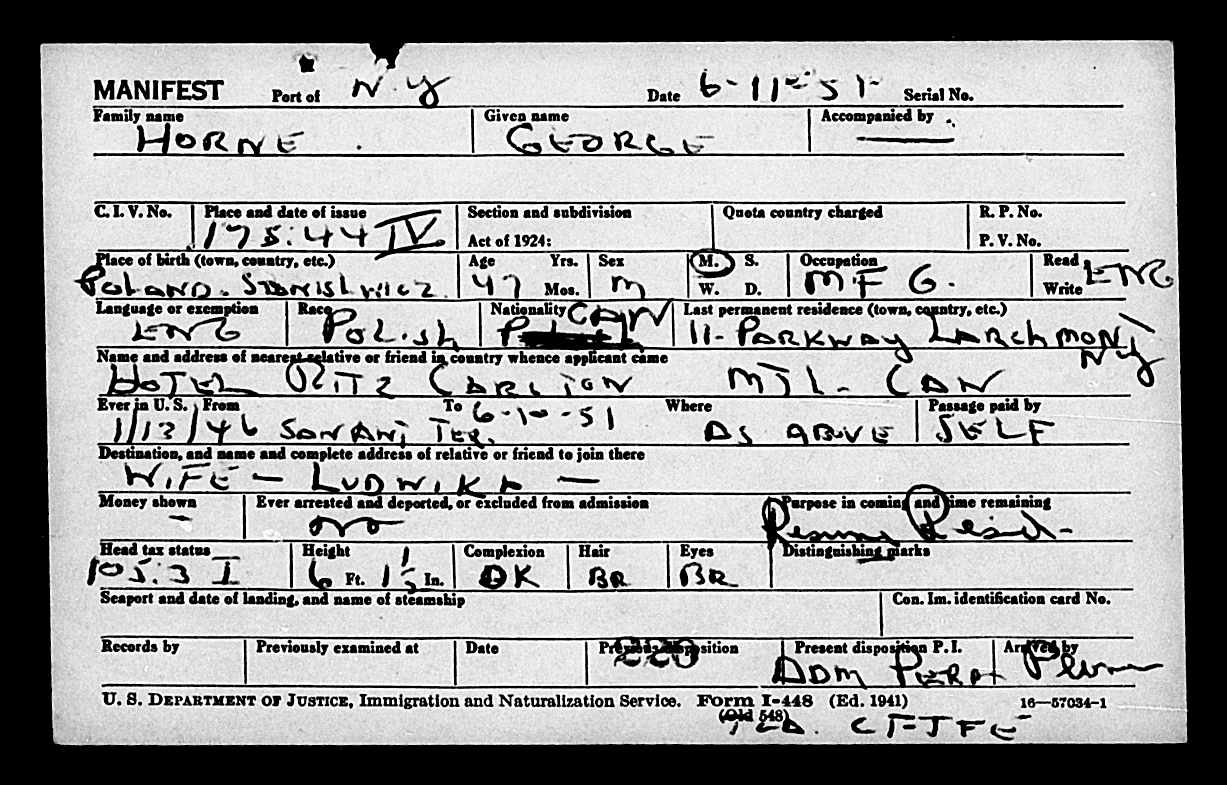 MANIFEST Port of N.Y Date 6-11-51- Serial No.
Family name Given name Accompanied by
HORNE GEORGE —
C. I. V. No. Place and date of issue Section and subdivision Quota country charged R. P. No.
175.44 IV Act of 1924: P. V. No.
Place of birth (town, country, etc.) Age Yrs. Sex M. S. Occupation Read
POLAND. 47 Mos. M W. D. MFG. Write ENG
Language or exemption Race Nationality CAN Last permanent residence (town, country, etc.)
ENG POLISH 11- PARKWAY LARCHMONT
Name and address of nearest relative or friend in country whence applicant came NY
HOTEL RITZ CARLTON MTL- CAN
Ever in U. S. From To 6-10-51 Where Passage paid by
1/12/46 AS ABOVE SELF
Destination, and name and complete address of relative or friend to join there
WIFE — LUDWIKA —
Money shown Ever arrested and deported, or excluded from admission Purpose in coming and time remaining
— NO Resume Resid-
Head tax status Height Complexion Hair Eyes Distinguishing marks
105.3 I 6 Ft. 1 1/2 In. DK BR BR
Seaport and date of landing, and name of steamship Con. Im. identification card No.
Records by Previously examined at Date Previous disposition Present disposition P. I. Arrived by
ADM
U. S. DEPARTMENT OF JUSTICE, Immigration and Naturalization Service. Form I-448 (Ed. 1941) 16—57034-1
(Old 548)